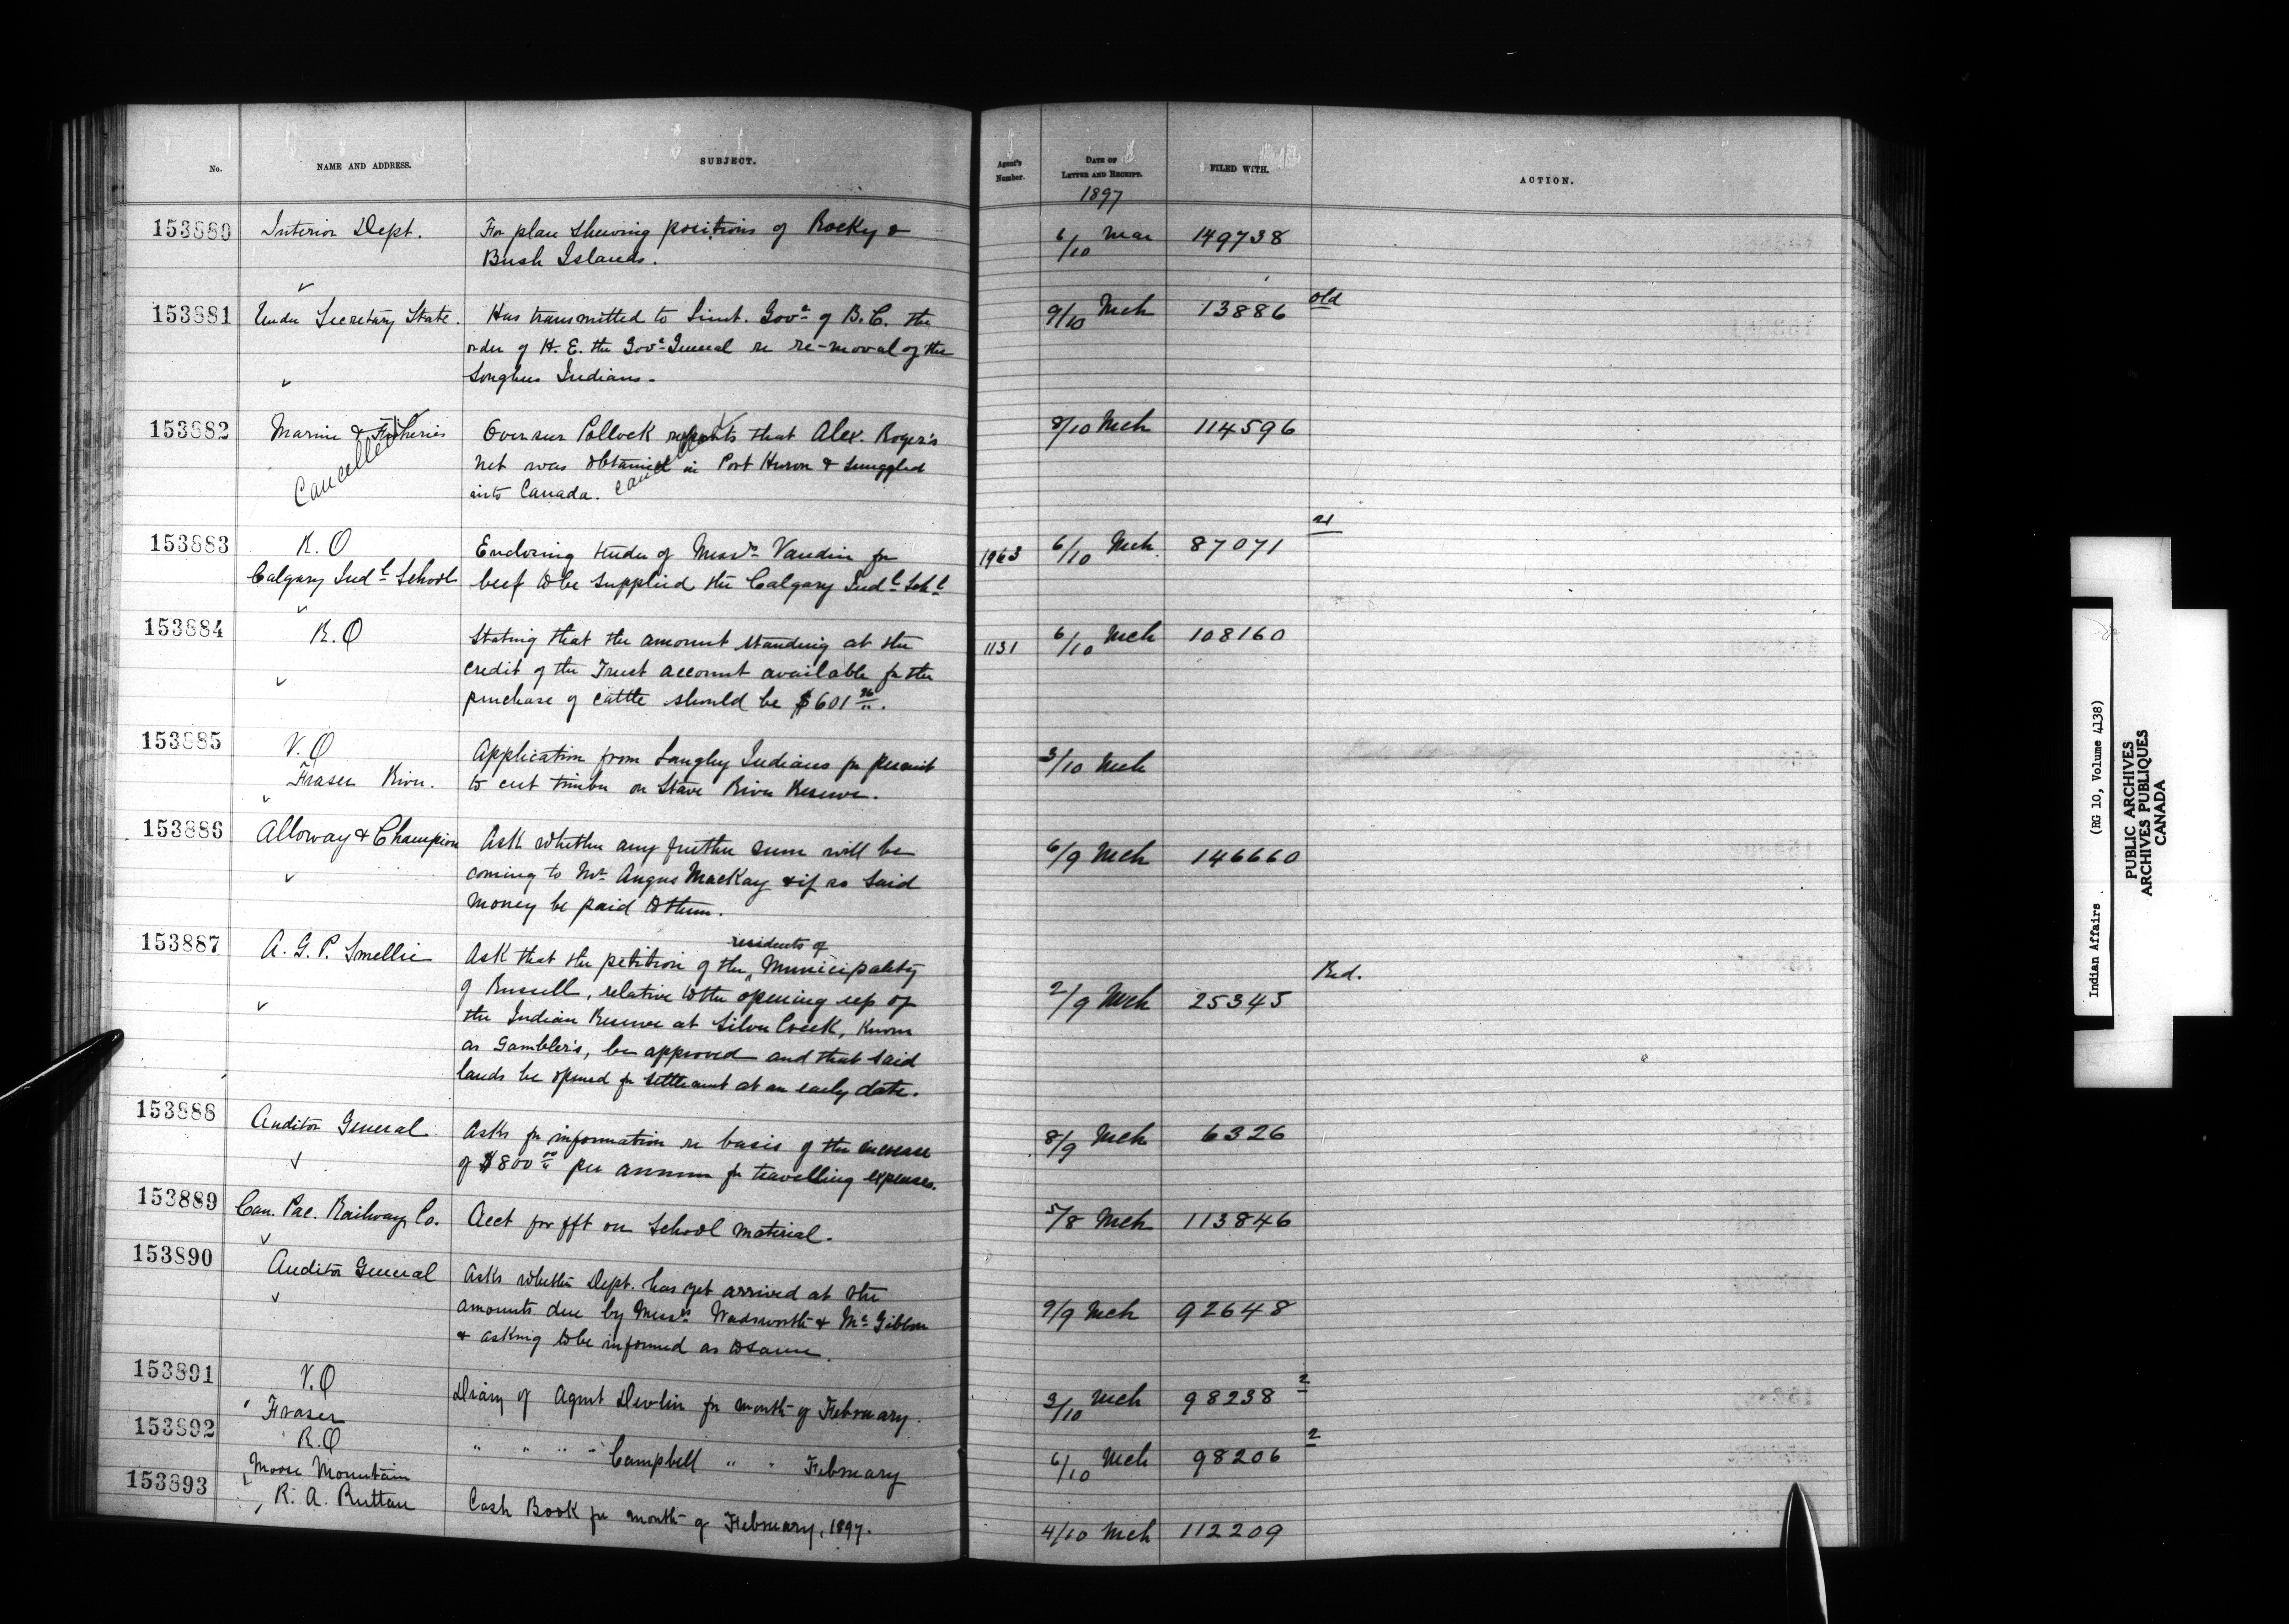 No.
NAME AND ADDRESS.
SUBJECT.
Agent's Number.
DATE OF LETTER AND RECEIPT.
FILED WITH.
ACTION.
1897
153880 Interior Dept. For plan shewing positions of Rocky & 6/10 Mar 149738
Bush Islands.
153881 Under Secretary State. Has transmitted to Lieut. Govr of B.C. the 9/10 Mch 13886 old
order of H.E. the Govr General re re-moval of the
Songhees Indians.
153882 Marine & Fisheries Overseer Pollock reports that Alex. Roger's 8/10 Mch 114596
Cancelled net was obtained in Port Huron & smuggled
into Canada. Cancelled
153883 R.O Enclosing tender of Messrs Vaudin for 1963 6/10 Mch. 87071
Calgary Indl School beef to be supplied the Calgary Indl Schl
153884 R.O Stating that the amount standing at the 1131 6/10 Mch 108160
credit of the Trust account available for the
purchase of cattle should be $601 26.
153885 V.O Application from Langley Indians for permit 3/10 Mch
Fraser River. to cut timber on Stave River Reserve.
153886 Alloway & Champion Ask whether any further sum will be 6/9 Mch 146660
coming to Mr Angus MacKay & if so said
money be paid to them.
153887 A. G. P. Smellie Ask that the petition of the residents of Municipality Red.
of Russell, relative to the opening up of 2/9 Mch 25345
the Indian Reserve at Silver Creek, known
as Gambler's, be approved and that said
lands be opened for settlement at an early date.
153888 Auditor General Asks for information re basis of the increase 8/9 Mch 6326
of $800 00 per annum for travelling expenses.
153889 Can. Pac. Railway Co. Acct for fft on School material. 5/8 Mch 113846
153890 Auditor General Asks whether Dept. has yet arrived at the
amounts due by Messrs Wadsworth & McGibbon 9/9 Mch 92648
& asking to be informed as to same.
153891 V.O Diary of Agent Devlin for month of February. 3/10 Mch 98238 2
Fraser
153892 R.O " " " " Campbell " " February 6/10 Mch 98206 2
Moose Mountain
153893 R. A. Ruttan Cash Book for month of February, 1897. 4/10 Mch 112209
Indian Affairs (RG 10, Volume 4138)
PUBLIC ARCHIVES
ARCHIVES PUBLIQUES
CANADA